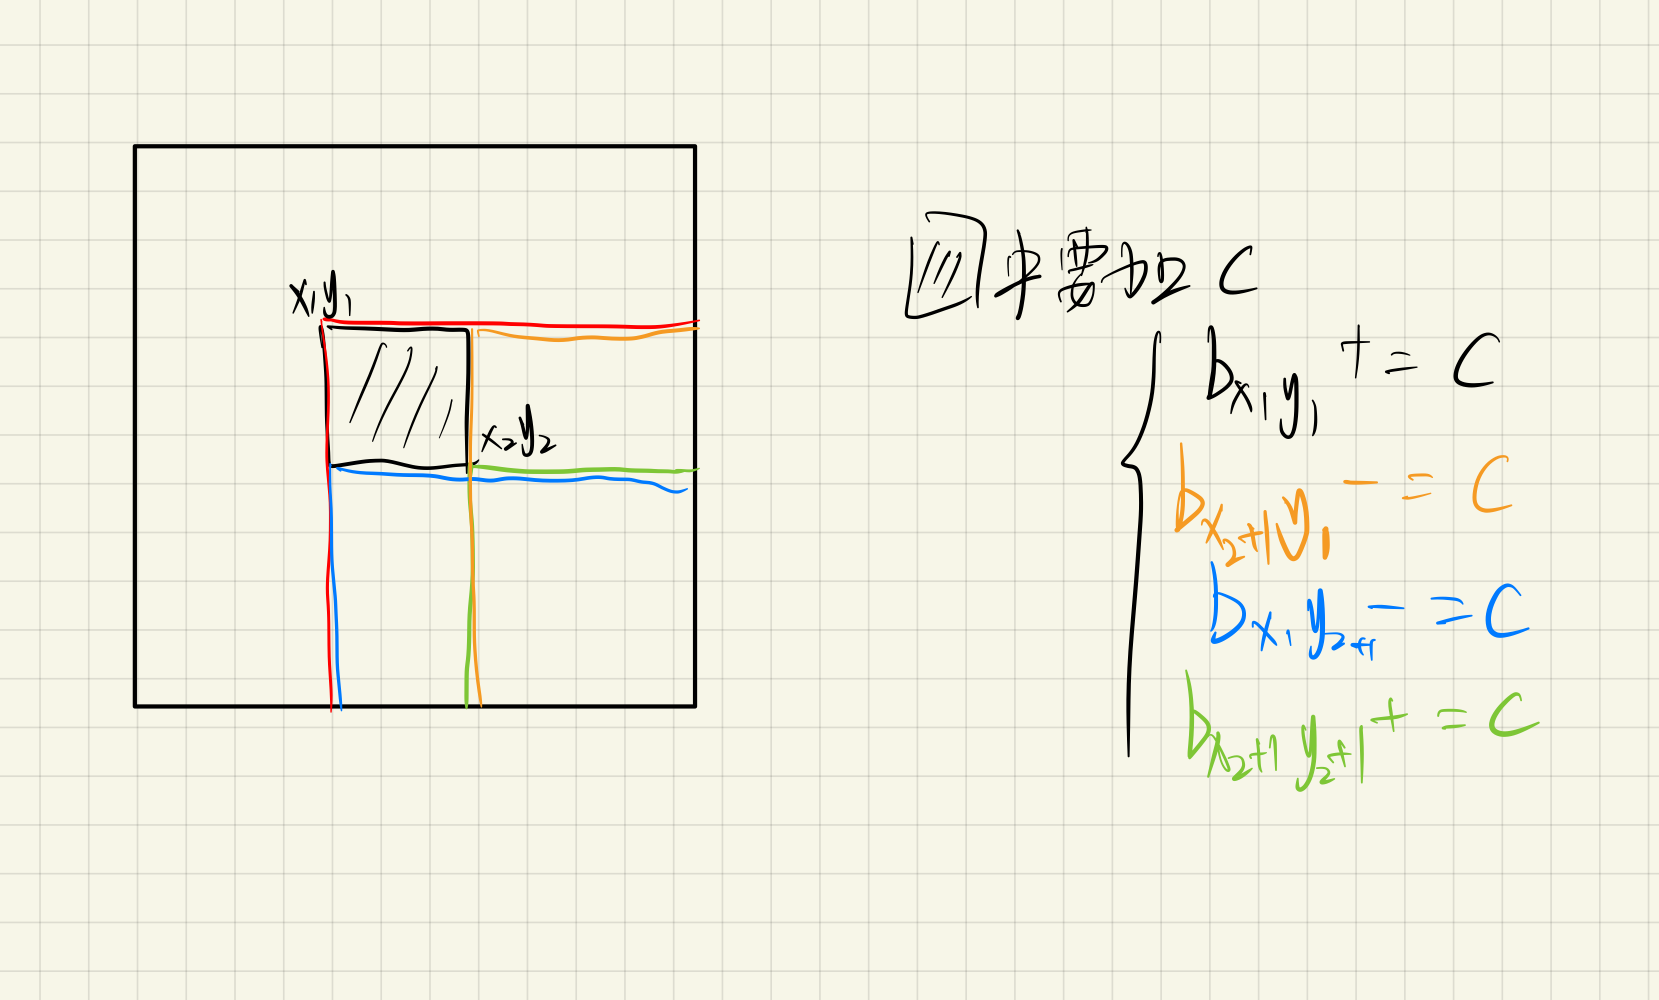 x₁y₁
x₂y₂
中要加 C
b x₁y₁ += C
b x₂+1 y₁ -= C
b x₁ y₂+1 -= C
b x₂+1 y₂+1 += C